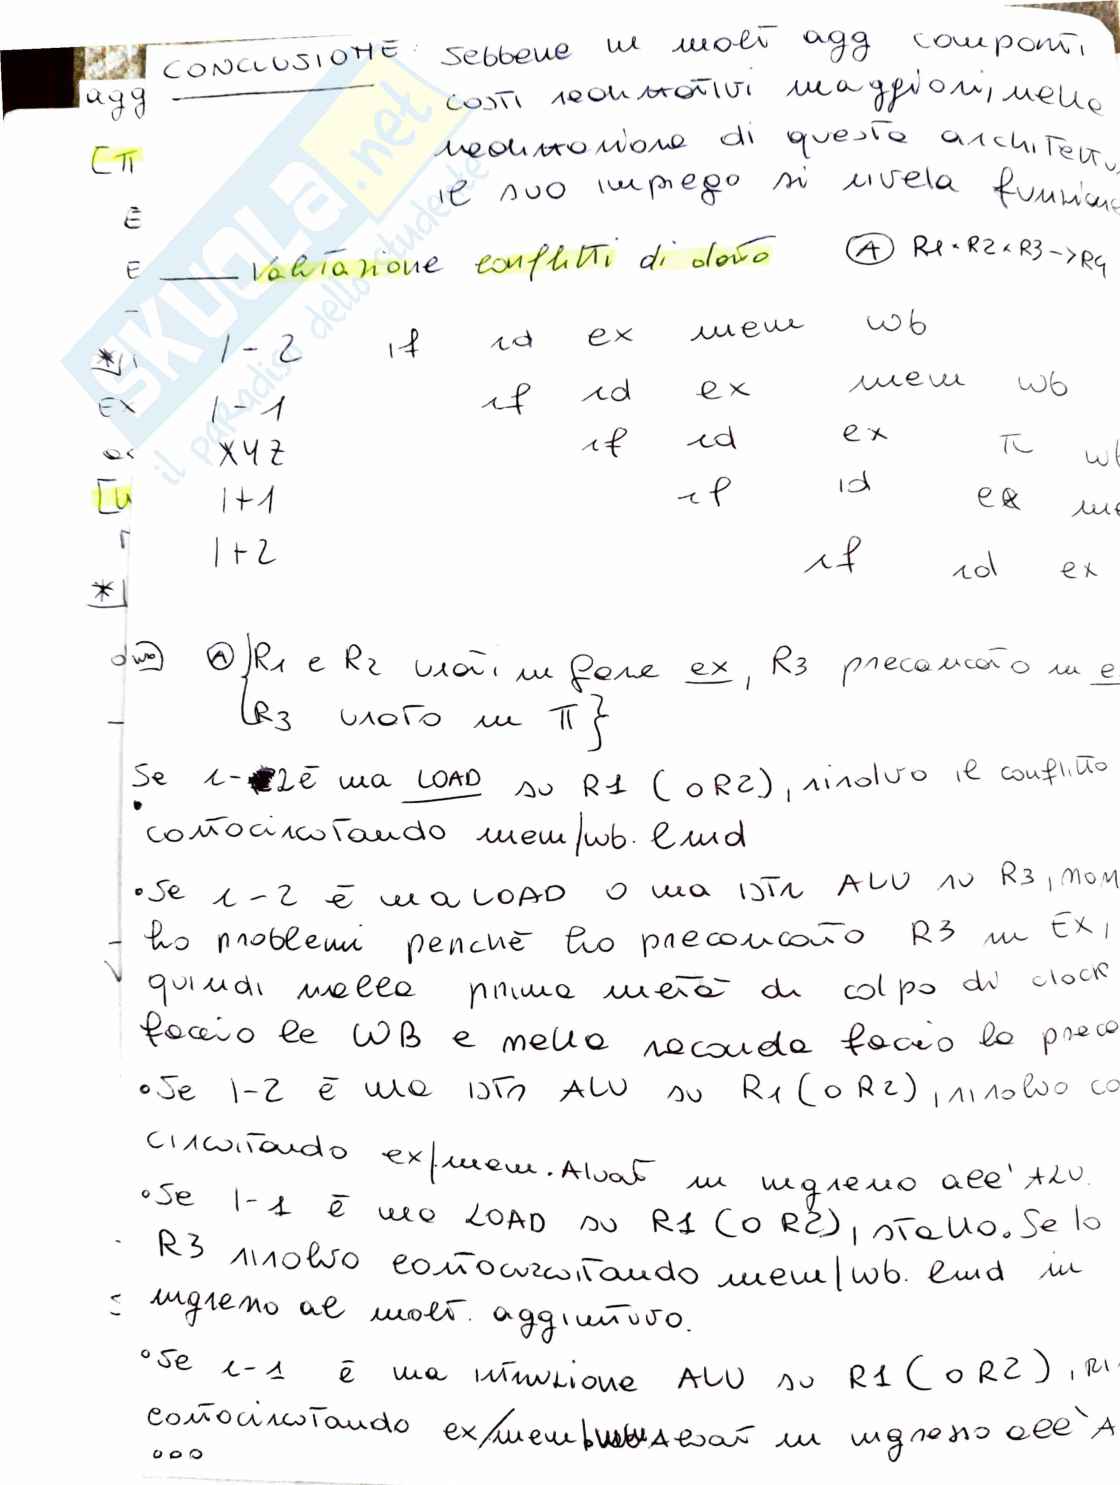 CONCLUSIONE: Sebbene il molt agg comporti
agg
costi realizzativi maggiori, nella
[π
realizzazione di questa architettu
il suo impiego si rivela funziona
E
E
Valutazione conflitti di dato (A) R1 * R2 * R3 -> R4
-
*
I-2 if id ex mem wb
EX
I-1 if id ex mem wb
XYZ if id ex π wb
[W
I+1 if id ex me
I+2 if id ex
*
(A) {R1 e R2 usati in fase ex, R3 precaricato in e
{R3 usato in π}
Se i-2 è una LOAD su R1 (o R2), risolvo il conflitto
cortocircuitando mem/wb.lmd
• Se i-2 è una LOAD o una istr ALU su R3, non
ho problemi perchè ho precaricato R3 in EX,
quindi nella prima metà di colpo di clock
faccio le WB e nella seconda faccio la preca
• Se I-2 è una istr ALU su R1 (o R2), risolvo co
circuitando ex/mem.Aluout in ingresso all'ALU.
• Se I-1 è una LOAD su R1 (o R2), stallo. Se lo
R3 risolvo cortocircuitando mem/wb.lmd in
ingresso al molt. aggiuntivo.
• Se i-1 è una istruzione ALU su R1 (o R2), ri
cortocircuitando ex/mem Aluout in ingresso all'A
°°°
SKUOLA.net
il paradiso dello studente